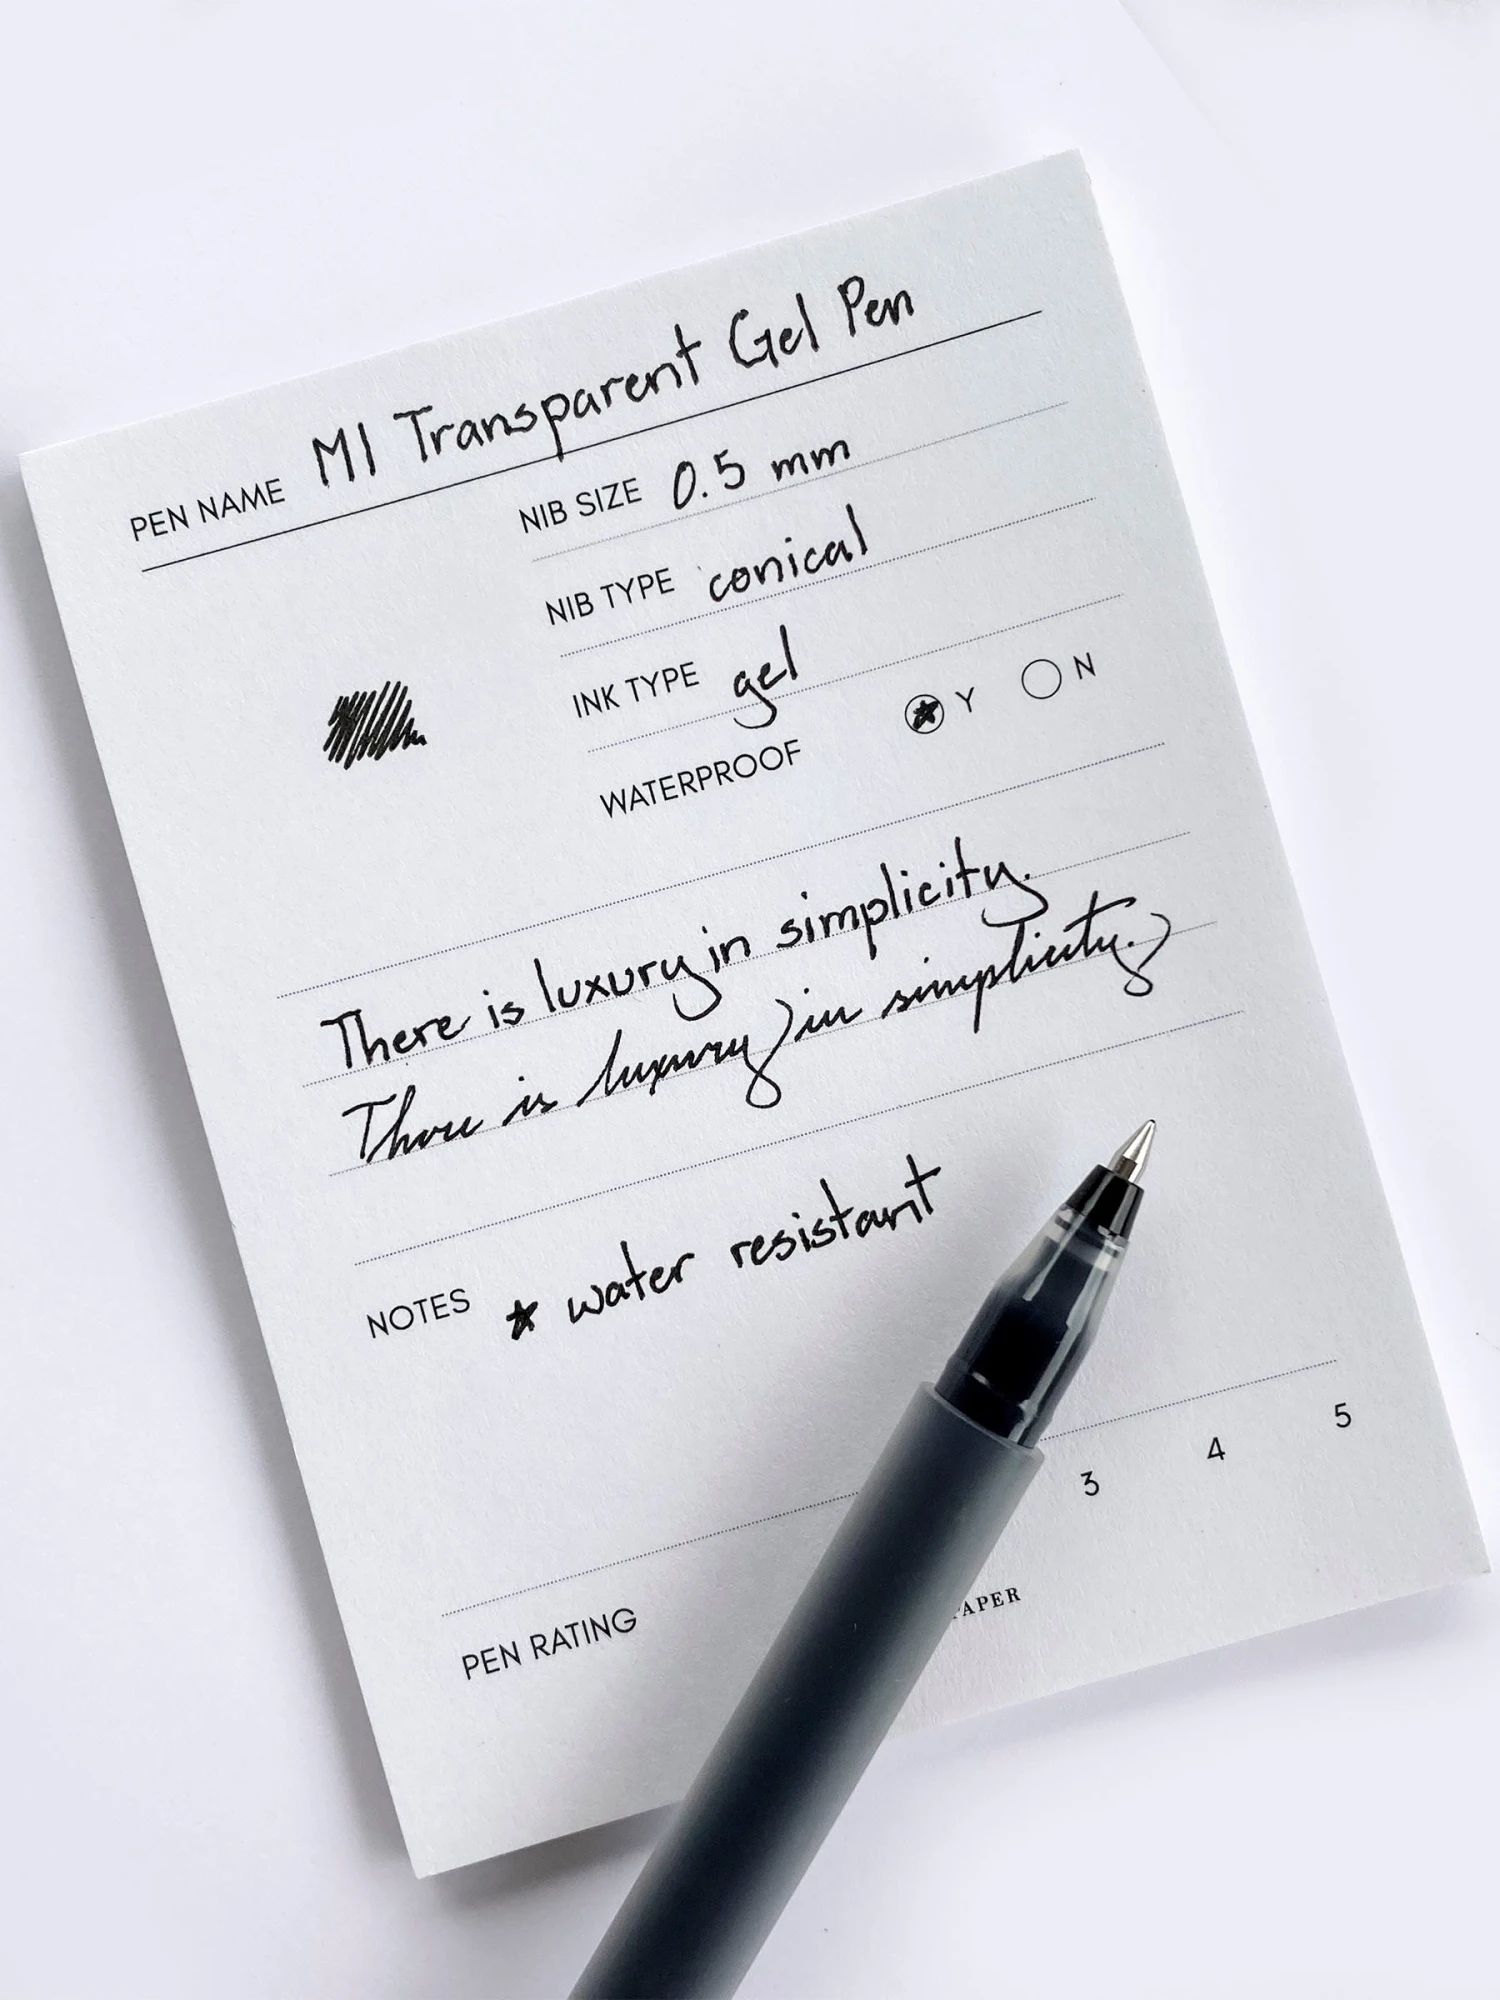 PEN NAME MI Transparent Gel Pen
NIB SIZE 0.5 mm
NIB TYPE conical
INK TYPE gel
WATERPROOF Y N
There is luxury in simplicity.
There is luxury in simplicity.
NOTES ★ water resistant
PEN RATING 3 4 5